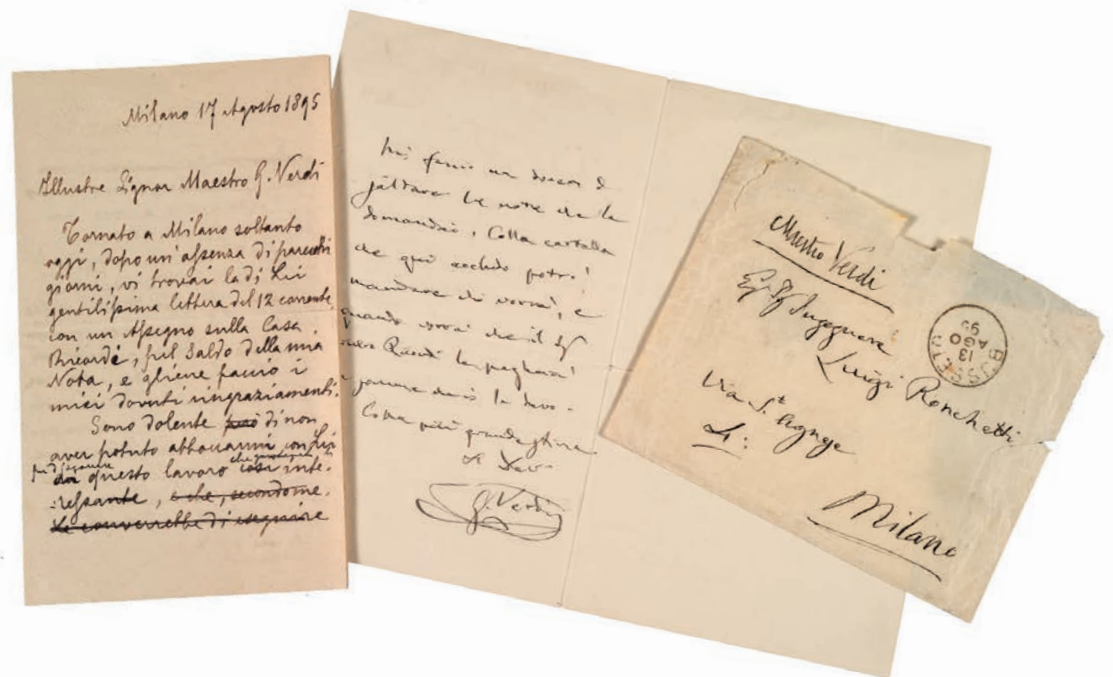 Milano 17 Agosto 1895
Illustre Signor Maestro G. Verdi
Tornato a Milano soltanto
oggi, dopo un'assenza di parecchi
giorni, vi trovai la di Lei
gentilissima lettera del 12 corrente
con un Assegno sulla Casa
Ricordi, pel Saldo della mia
Nota, e gliene faccio i
miei dovuti ringraziamenti.
Sono dolente di non
aver potuto abboccarmi con Lei
questo lavoro così inte-
:ressante, e che, secondo me,
Le converrebbe di eseguire
Mi faccio un dovere di
le note che le
domandai, Colla cartella
che qui accludo potrà
mandare chi vorrà, e
quando vorrà che il Sig
Ricordi la pagherà
la devo-
Colla più grande stima
G. Verdi
Maestro Verdi
Ingegnere
Luigi Ronchetti
Via St. Agnese
4:
Milano
BUSSETO
13
AGO
95